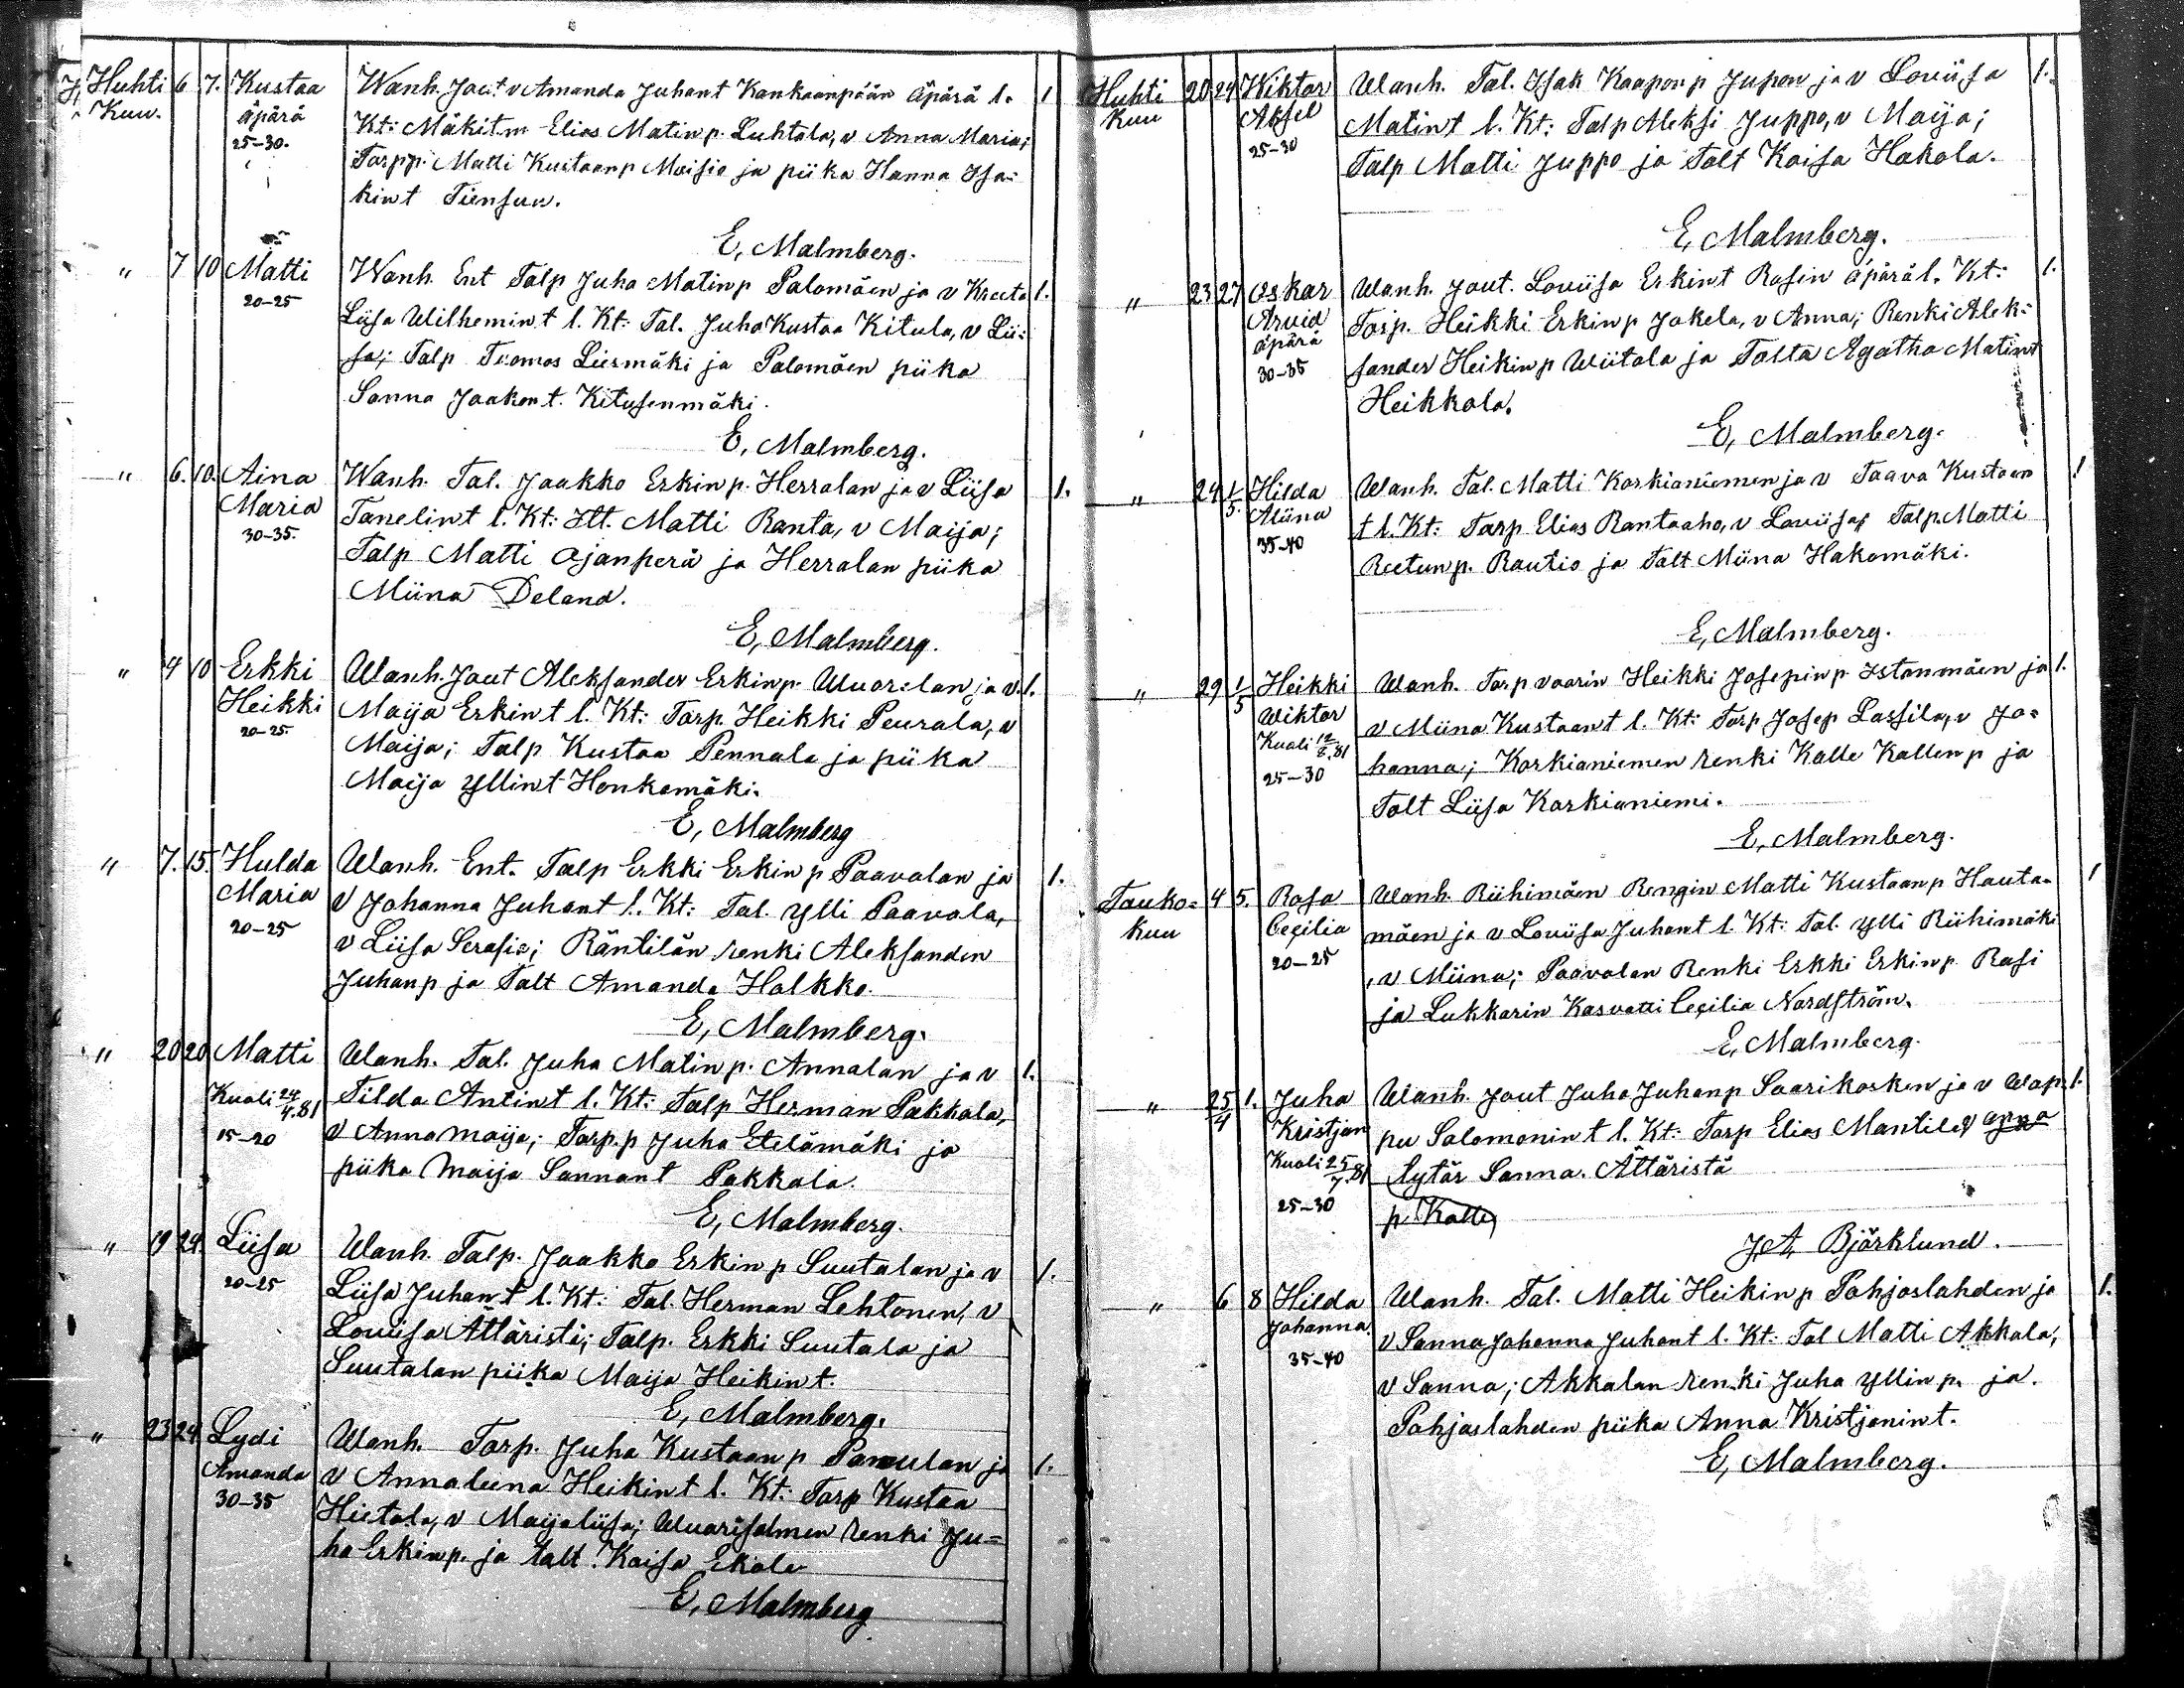 Huhti 6 7. Kustaa Wanh. Jout v Amanda Juhant Kankaanpään äpärä l. 1
Kuu. äpärä Kt: Mäkitm Elias Matinp. Luhtala, v Anna Maria;
25-30. Torpp. Matti Kustaanp Moisio ja piika Hanna Isa-
kint Tiensuu.
E, Malmberg.
" 7 10 Matti Wanh. Ent Talp Juha Matinp Palomäen ja v Kreeta 1.
20-25 Liisa Wilhemint l. Kt: Tal. Juha Kustaa Kitula, v Lii-
sa; Talp Tuomas Liesmäki ja Palomäen piika
Sanna Jaakont. Kitusenmäki.
E, Malmberg.
" 6. 10. Aina Wanh. Tal. Jaakko Erkinp. Herralan ja v Liisa 1.
Maria Tanelint l. Kt: Itt. Matti Ranta, v Maija;
30-35. Talp Matti Ajanperä ja Herralan piika
Miina Deland.
E, Malmberg.
" 4 10 Erkki Wanh. Jout Aleksander Erkinp. Wuorelan ja v. 1.
Heikki Maija Erkint l. Kt: Torp. Heikki Peurala, v
20-25. Maija; Talp Kustaa Pennala ja piika
Maija Yllint Honkamäki.
E, Malmberg
" 7. 15. Hulda Wanh. Ent. Talp Erkki Erkinp Paavolan ja 1.
Maria v Johanna Juhant l. Kt: Tal. Ylli Paavola,
20-25 v Liisa Serafia; Räntilän renki Aleksanden
Juhanp ja Talt Amanda Halkko.
E, Malmberg.
" 20 20 Matti Wanh. Tal. Juha Matinp. Annalan ja v 1.
Kuoli 24/4.81 Tilda Antint l. Kt: Talp Herman Pakkala,
15-20 v Annamaija; Torp.p Juha Etelämäki ja
piika Maija Sannant Pakkala.
E, Malmberg.
" 19 24. Liisa Wanh. Talp. Jaakko Erkinp Suutalan ja v 1.
20-25 Liisa Juhant l. Kt: Tal. Herman Lehtonen, v
Louiisa Ättäristä; Talp. Erkki Suutala ja
Suutalan piika Maija Heikint.
E, Malmberg.
" 23 24 Lydi Wanh. Torp. Juha Kustaanp Panulan ja 1.
Amanda v Annaleena Heikint l. Kt: Torp Kustaa
30-35 Hietala, v Maijaliisa; Wuorisalmen renki Ju=
ho Erkinp. ja talt. Kaisa Ekola
E, Malmberg
Huhti 20 24 Wiktor Wanh. Tal. Isak Kaaponp Jupon ja v Louiisa 1.
Kuu Aksel Matint l. Kt: Talp Aleksi Juppo, v Maija;
25-30 Talp Matti Juppo ja Talt Kaisa Hakola.
E, Malmberg.
" 23 27 Oskar Wanh. Jout. Louiisa Erkint Rasin äpärä l. Kt: 1.
Arvid Torp. Heikki Erkinp Jokela, v Anna; Renki Alek-
äpärä sander Heikinp Wiitala ja Talta Agatha Matint
30-35 Heikkola.
E, Malmberg.
" 24 1/5. Hilda Wanh. Tal. Matti Korkianiemen ja v Taava Kustaan 1
Miina t l. Kt: Torp Elias Rantaaho, v Louiisa; Talp. Matti
35-40 Reetunp. Rautio ja Talt Miina Hakomäki.
E, Malmberg.
" 29 1/5 Heikki Wanh. Torpvaarin Heikki Josepinp Istonmäen ja 1.
Wiktor v Miina Kustaant l. Kt: Torp Josep Lassila, v Jo-
Kuoli 12/8.81 hanna; Korkianiemen renki Kalle Kallenp ja
25-30 Talt Liisa Korkianiemi.
E, Malmberg.
Touko= 4 5. Rosa Wanh. Riihimäen Rengin Matti Kustaanp Hauta- 1
Kuu Cecilia mäen ja v Louiisa Juhant l. Kt: Tal. Ylli Riihimäki
20-25 , v Miina; Paavolan Renki Erkki Erkinp Rasi
ja Lukkarin Kasvatti Cecilia Nordström.
E, Malmberg.
" 25/4 1. Juha Wanh. Jout Juha Juhanp Saarikosken ja v Wap- 1.
Kristjan pu Salomonint l. Kt: Torp Elias Mantila, Anna
Kuoli 25/7.81 tytär Sanna. Ättäristä
25-30 p. Kalle
J.A. Björklund.
" 6 8 Hilda Wanh. Tal. Matti Heikinp Pohjoslahden ja 1.
Johanna. v Sanna Johanna Juhant l. Kt: Tal Matti Akkala,
35-40 v Sanna; Akkalan renki Juha Yllinp. ja.
Pohjoslahden piika Anna Kristjanint.
E, Malmberg.